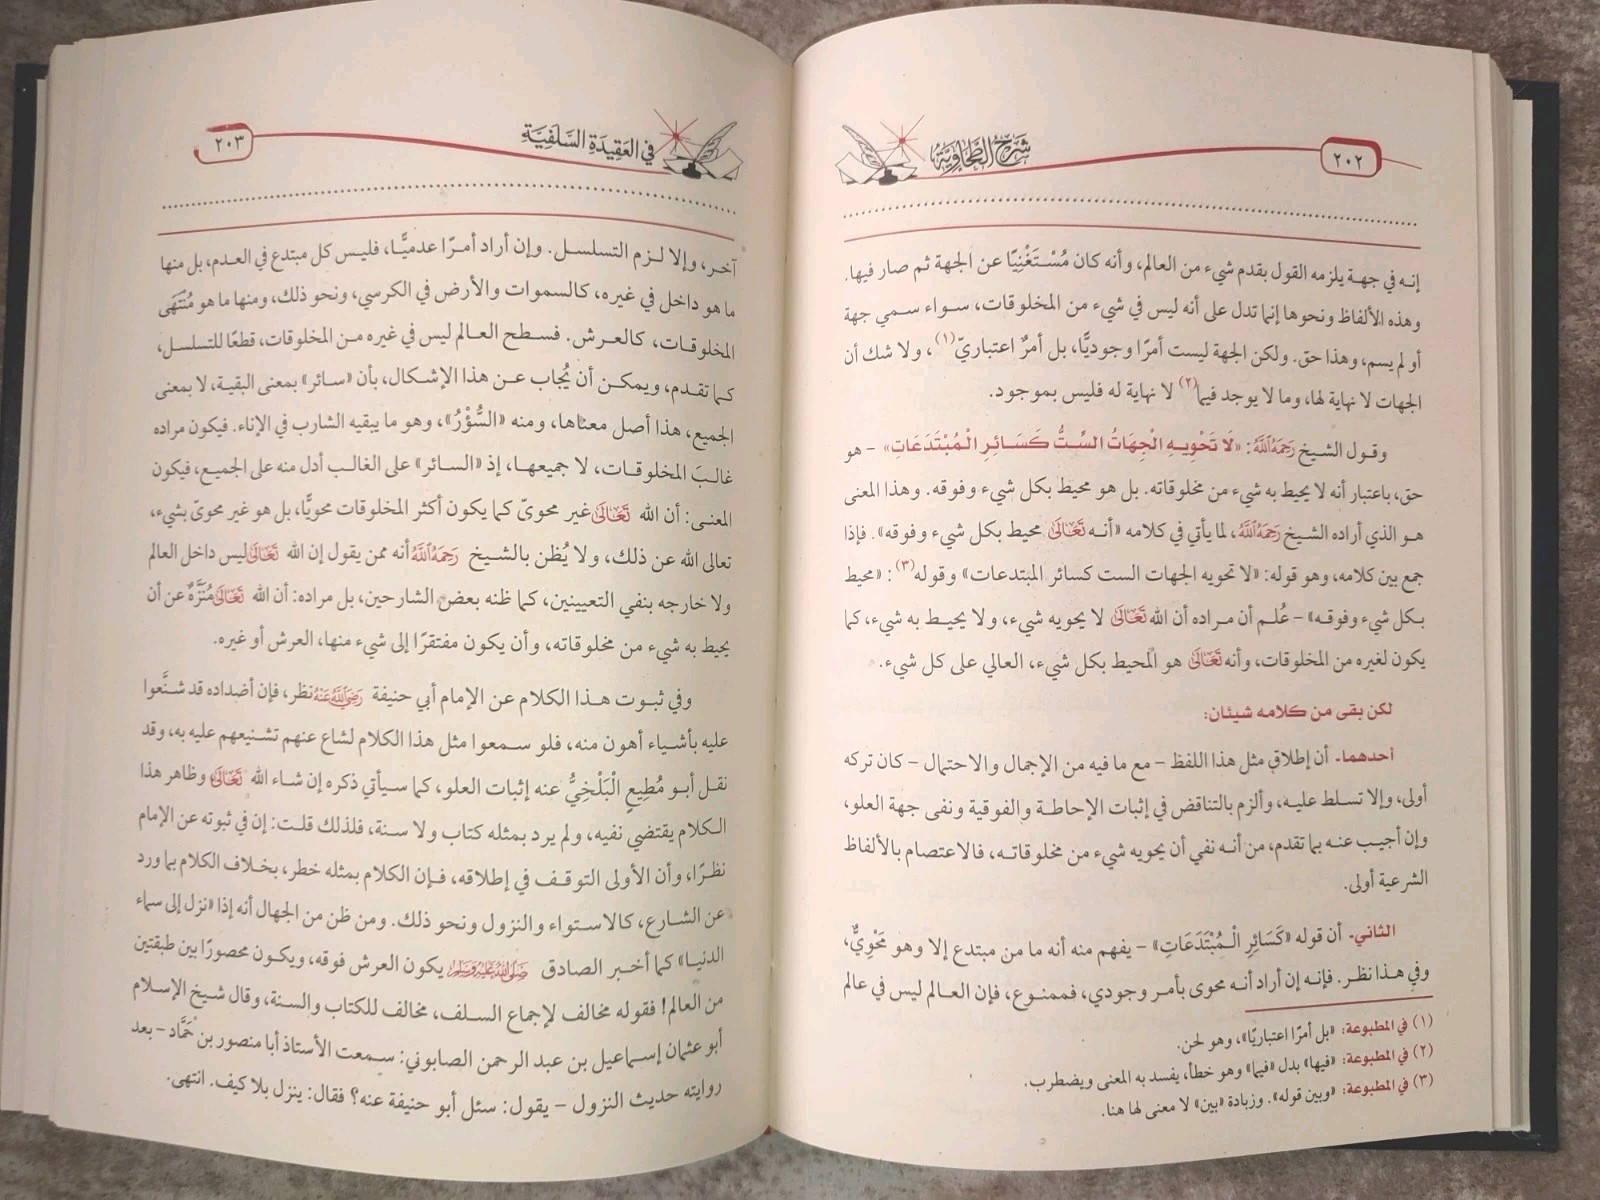 ٢٠٢
شرح الطحاوية
إنه في جهة يلزمه القول بقدم شيء من العالم، وأنه كان مُسْتَغْنِيًا عن الجهة ثم صار فيها.
وهذه الألفاظ ونحوها إنما تدل على أنه ليس في شيء من المخلوقات، سواء سمي جهة
أو لم يسم، وهذا حق. ولكن الجهة ليست أمرًا وجوديًّا، بل أمرٌ اعتباريّ(١)، ولا شك أن
الجهات لا نهاية لها، وما لا يوجد فيما(٢) لا نهاية له فليس بموجود.
وقول الشيخ رَحِمَهُ ٱللَّهُ: «لَا تَحْوِيهِ الْجِهَاتُ السِّتُّ كَسَائِرِ الْمُبْتَدَعَاتِ» – هو
حق، باعتبار أنه لا يحيط به شيء من مخلوقاته. بل هو محيط بكل شيء وفوقه. وهذا المعنى
هو الذي أراده الشيخ رَحِمَهُ ٱللَّهُ، لما يأتي في كلامه «أنه تَعَالَىٰ محيط بكل شيء وفوقه». فإذا
جمع بين كلامه، وهو قوله: «لا تحويه الجهات الست كسائر المبتدعات» وقوله(٣): «محيط
بكل شيء وفوقه» – عُلم أن مراده أن الله تَعَالَىٰ لا يحويه شيء، ولا يحيط به شيء، كما
يكون لغيره من المخلوقات، وأنه تَعَالَىٰ هو المحيط بكل شيء، العالي على كل شيء.
لكن بقي من كلامه شيئان:
أحدهما- أن إطلاق مثل هذا اللفظ – مع ما فيه من الإجمال والاحتمال – كان تركه
أولى، وإلا تسلط عليه، وألزم بالتناقض في إثبات الإحاطة والفوقية ونفى جهة العلو،
وإن أجيب عنه بما تقدم، من أنه نفي أن يحويه شيء من مخلوقاته، فالاعتصام بالألفاظ
الشرعية أولى.
الثاني- أن قوله «كَسَائِرِ الْمُبْتَدَعَاتِ» – يفهم منه أنه ما من مبتدع إلا وهو مَحْوِيٌّ،
وفي هذا نظر. فإنه إن أراد أنه محوى بأمر وجودي، فممنوع، فإن العالم ليس في عالم
(١) في المطبوعة: «بل أمرًا اعتباريًا»، وهو لحن.
(٢) في المطبوعة: «فيها» بدل «فيما» وهو خطأ، يفسد به المعنى ويضطرب.
(٣) في المطبوعة: «وبين قوله». وزيادة «بين» لا معنى لها هنا.
في العَقِيدَةِ السَّلَفِيَّةِ
٢٠٣
آخر، وإلا لزم التسلسل. وإن أراد أمرًا عدميًّا، فليس كل مبتدع في العدم، بل منها
ما هو داخل في غيره، كالسموات والأرض في الكرسي، ونحو ذلك، ومنها ما هو مُنْتَهَى
المخلوقات، كالعرش. فسطح العالم ليس في غيره من المخلوقات، قطعًا للتسلسل،
كما تقدم، ويمكن أن يُجاب عن هذا الإشكال، بأن «سائر» بمعنى البقية، لا بمعنى
الجميع، هذا أصل معناها، ومنه «السُّؤْرُ»، وهو ما يبقيه الشارب في الإناء. فيكون مراده
غالبَ المخلوقات، لا جميعها، إذ «السائر» على الغالب أدل منه على الجميع، فيكون
المعنى: أن الله تَعَالَىٰ غير محوىّ كما يكون أكثر المخلوقات محويًّا، بل هو غير محوىّ بشيء،
تعالى الله عن ذلك، ولا يُظن بالشيخ رَحِمَهُ ٱللَّهُ أنه ممن يقول إن الله تَعَالَىٰ ليس داخل العالم
ولا خارجه بنفي التعيينين، كما ظنه بعض الشارحين، بل مراده: أن الله تَعَالَىٰ مُنَزَّهٌ عن أن
يحيط به شيء من مخلوقاته، وأن يكون مفتقرًا إلى شيء منها، العرش أو غيره.
وفي ثبوت هذا الكلام عن الإمام أبي حنيفة رَضِيَ ٱللَّهُ عَنْهُ نظر، فإن أضداده قد شنَّعوا
عليه بأشياء أهون منه، فلو سمعوا مثل هذا الكلام لشاع عنهم تشنيعهم عليه به، وقد
نقل أبو مُطِيعٍ الْبَلْخِيُّ عنه إثبات العلو، كما سيأتي ذكره إن شاء الله تَعَالَىٰ وظاهر هذا
الكلام يقتضي نفيه، ولم يرد بمثله كتاب ولا سنة، فلذلك قلت: إن في ثبوته عن الإمام
نظرًا، وأن الأولى التوقف في إطلاقه، فإن الكلام بمثله خطر، بخلاف الكلام بما ورد
عن الشارع، كالاستواء والنزول ونحو ذلك. ومن ظن من الجهال أنه إذا «نزل إلى سماء
الدنيا» كما أخبر الصادق صَلَّى ٱللَّهُ عَلَيْهِ وَسَلَّمَ يكون العرش فوقه، ويكون محصورًا بين طبقتين
من العالم! فقوله مخالف لإجماع السلف، مخالف للكتاب والسنة، وقال شيخ الإسلام
أبو عثمان إسماعيل بن عبد الرحمن الصابوني: سمعت الأستاذ أبا منصور بن حَمَّاد – بعد
روايته حديث النزول – يقول: سئل أبو حنيفة عنه؟ فقال: ينزل بلا كيف. انتهى.